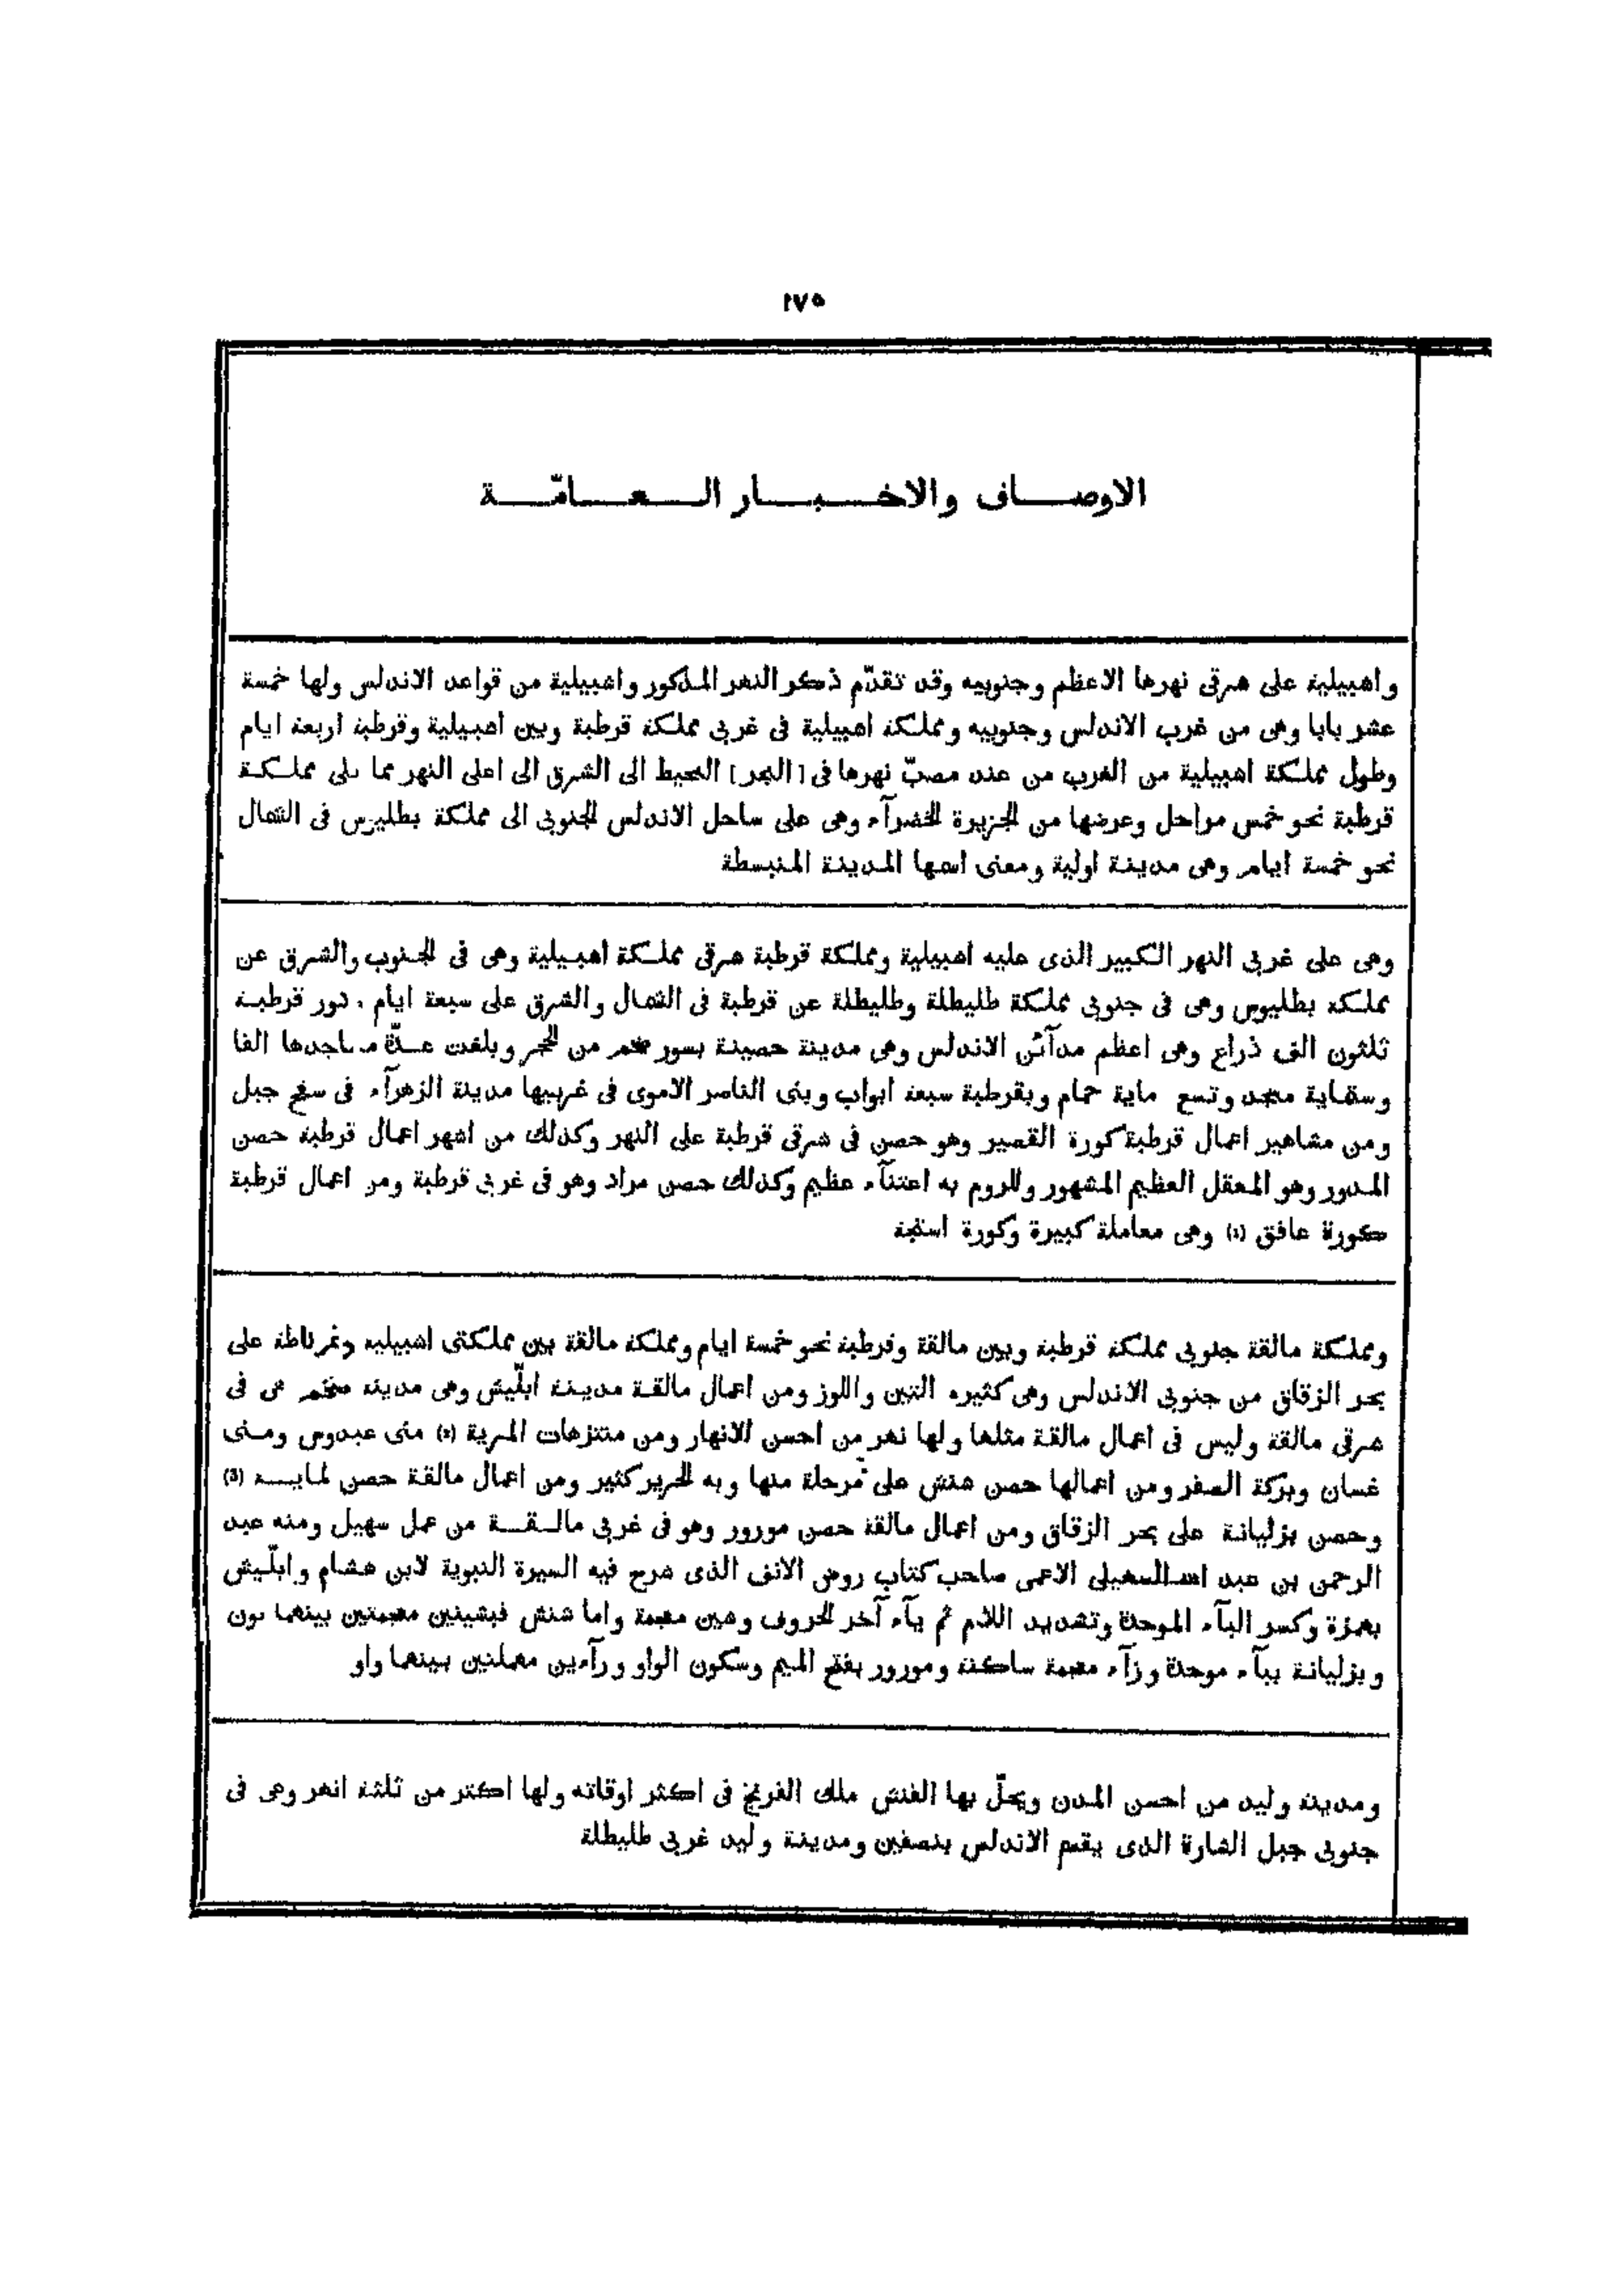 ١٧٥
الاوصاف والاخبار العامّة
واشبيلية على شرقى نهرها الاعظم وجنوبيه وقد تقدّم ذكر النهر المذكور واشبيلية من قواعد الاندلس ولها خمسة
عشر بابا وهى من غرب الاندلس وجنوبيه ومملكة اشبيلية فى غربى مملكة قرطبة وبين اشبيلية وقرطبة اربعة ايام
وطول مملكة اشبيلية من الغرب من عند مصبّ نهرها فى [البحر] المحيط الى الشرق الى اعلى النهر مما يلى مملكة
قرطبة نحو خمس مراحل وعرضها من الجزيرة الخضرآء وهى على ساحل الاندلس الجنوبى الى مملكة بطليوس فى الشمال
نحو خمسة ايام وهى مدينة اولية ومعنى اسمها المدينة المنبسطة
وهى على غربى النهر الكبير الذى عليه اشبيلية ومملكة قرطبة شرقى مملكة اشبيلية وهى فى الجنوب والشرق عن
مملكة بطليوس وهى فى جنوبى مملكة طليطلة وطليطلة عن قرطبة فى الشمال والشرق على سبعة ايام ودور قرطبة
ثلثون الف ذراع وهى اعظم مدآئن الاندلس وهى مدينة حصينة بسور ضخم من الحجر وبلغت عدّة مساجدها الفا
وستماية مسجد وتسع ماية حمام وبقرطبة سبعة ابواب وبنى الناصر الاموى فى غربيها مدينة الزهرآء فى سفح جبل
ومن مشاهير اعمال قرطبة كورة القصير وهو حصن فى شرقى قرطبة على النهر وكذلك من اشهر اعمال قرطبة حصن
المدور وهو المعقل العظيم المشهور وللروم به اعتنآء عظيم وكذلك حصن مراد وهو فى غربى قرطبة ومن اعمال قرطبة
كورة عافق (١) وهى معاملة كبيرة وكورة استجة
ومملكة مالقة جنوبى مملكة قرطبة وبين مالقة وقرطبة نحو خمسة ايام ومملكة مالقة بين مملكتى اشبيلية وغرناطة على
بحر الزقاق من جنوبى الاندلس وهى كثيرة التين واللوز ومن اعمال مالقة مدينة ابلّيش وهى مدينة ضخمة هى فى
شرقى مالقة وليس فى اعمال مالقة مثلها ولها نهر من احسن الانهار ومن متنزهات المرية (٢) منى عبدوس ومنى
غسان وبركة الصفر ومن اعمالها حصن شنش على مرحلة منها وبه الحرير كثير ومن اعمال مالقة حصن (٣)
وحصن بزليانة على بحر الزقاق ومن اعمال مالقة حصن مورور وهو فى غربى مالقة من عمل سهيل ومنه عبد
الرحمن بن عبد الله السهيلى الاعمى صاحب كتاب روض الانف الذى شرح فيه السيرة النبوية لابن هشام وابلّيش
بهمزة وكسر البآء الموحدة وتشديد اللام ثم يآء آخر الحروف وشين معجمة واما شنش فبشينين معجمتين بينهما نون
وبزليانة ببآء موحدة وزآء معجمة ساكنة ومورور بفتح الميم وسكون الواو ورآءين مهملتين بينهما واو
ومدينة وليد من احسن المدن ويحلّ بها الفنش ملك الفرنج فى اكثر اوقاته ولها اكثر من ثلثة انهر وهى فى
جنوبى جبل الشارة الذى يقسم الاندلس بنصفين ومدينة وليد غربى طليطلة